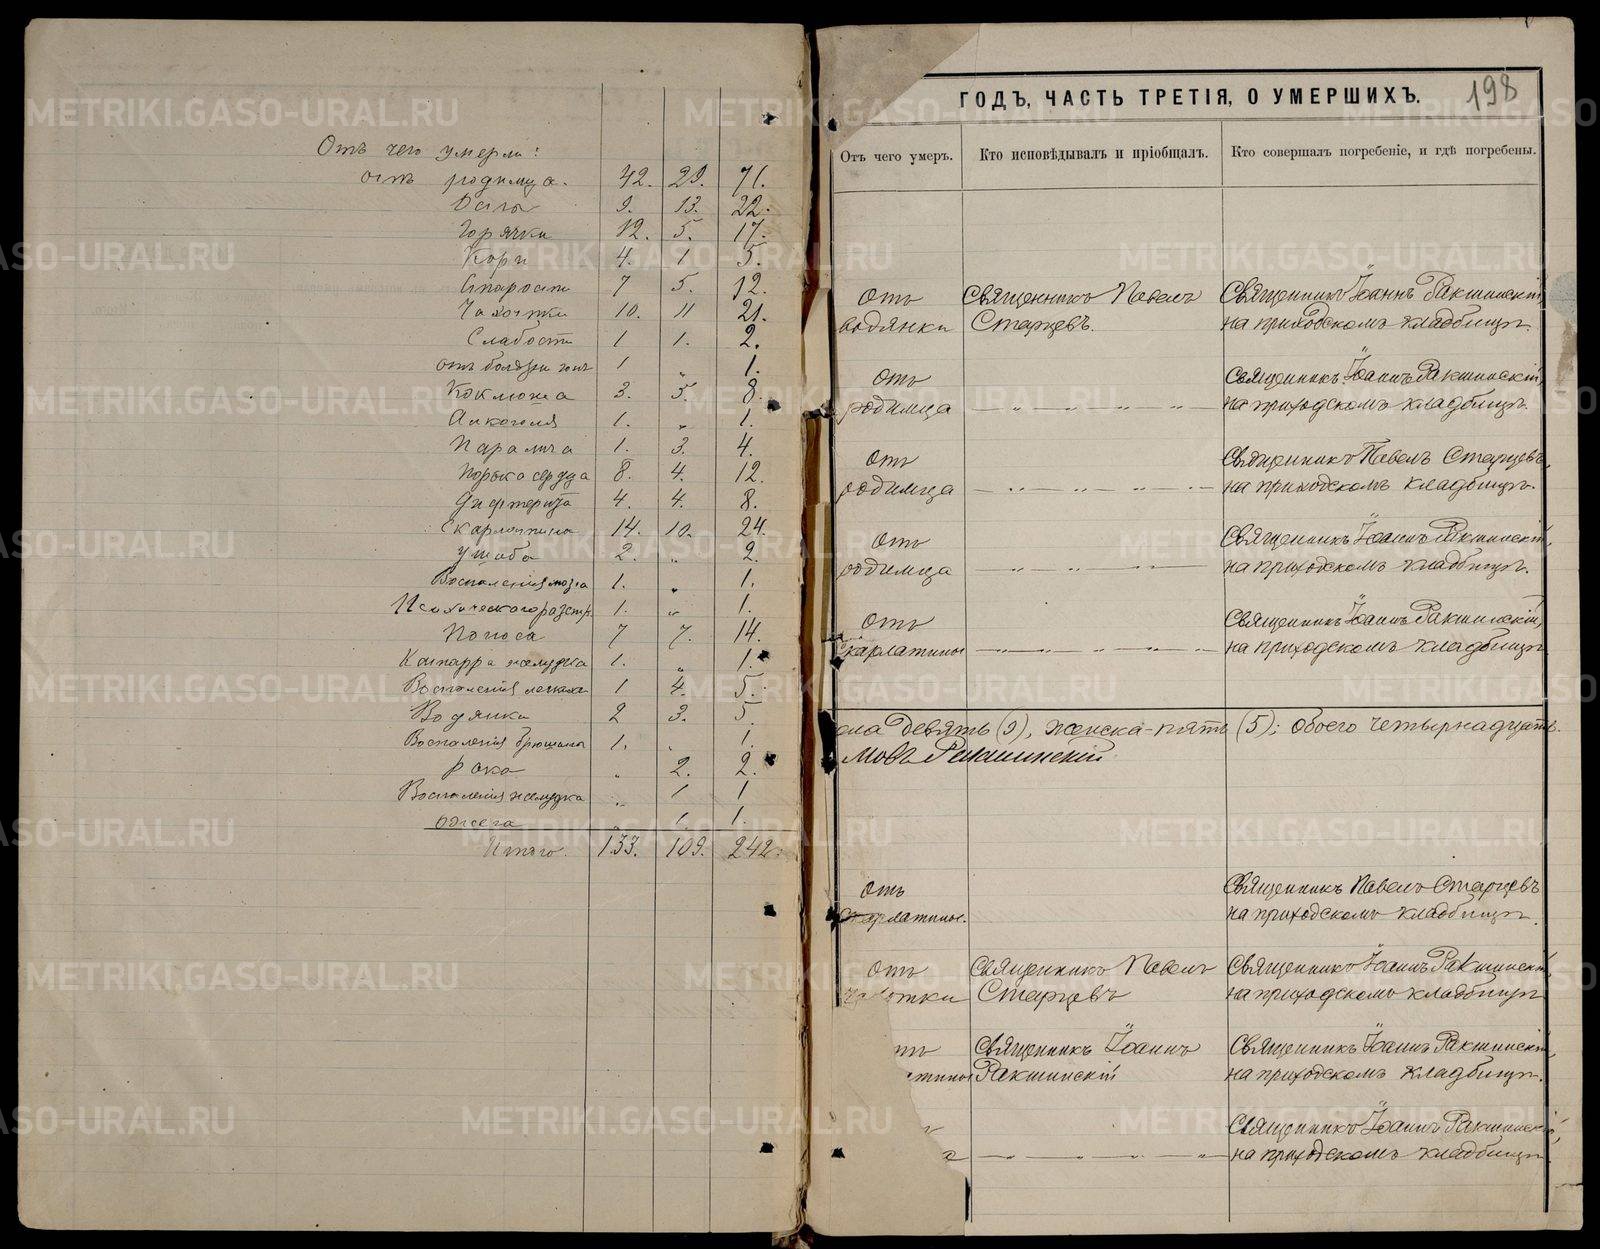 Отъ чего умерли:
отъ родимца. 42. 29. 71.
9. 13. 22.
Горячки 12. 5. 17.
Кори 4. 1 5.
Старости 7 5. 12.
Чахотки 10. 11 21.
Слабости 1 1. 2.
отъ болѣзни 1 „ 1.
Коклюша 3. 5. 8.
Алкоголя 1. „ 1.
Паралича 1. 3. 4.
Порока сердца 8. 4. 12.
Дифтерита 4. 4. 8.
Скарлатина 14. 10. 24.
Ушиба 2. „ 2.
Воспаленія мозга 1. „ 1.
Психическаго разстр. 1. „ 1.
Поноса 7 7. 14.
Катарра желудка 1. „ 1.
Воспаленія легкихъ 1 4. 5.
Водянки 2 3. 5.
Воспаленія брюшины 1. „ 1.
Рака „ 2. 2.
Воспаленія желудка „ 1 1
Ожега „ 1. 1.
Итого. 133. 109. 242.
198
ГОДЪ, ЧАСТЬ ТРЕТІЯ, О УМЕРШИХЪ.
Отъ чего умеръ. Кто исповѣдывалъ и пріобщалъ. Кто совершалъ погребеніе, и гдѣ погребены.
Отъ Священникъ Павелъ Священникъ Іоаннъ Ракшинскій,
водянки Старцевъ. на приходскомъ кладбищѣ.
Отъ Священникъ Іоаннъ Ракшинскій,
родимца — „ — „ — „ — „ на приходскомъ кладбищѣ.
Отъ Священникъ Павелъ Старцевъ,
родимца — „ — „ — „ — „ на приходскомъ кладбищѣ.
Отъ Священникъ Іоаннъ Ракшинскій,
родимца — „ — „ — „ — на приходскомъ кладбищѣ.
Отъ Священникъ Іоаннъ Ракшинскій,
скарлатины — „ — „ — „ — „ — на приходскомъ кладбищѣ
ола девять (9), женска-пять (5); обоего четырнадцать.
мовъ Ракшинскій
Отъ Священникъ Павелъ Старцевъ
скарлатины. на приходскомъ кладбищѣ.
Отъ Священникъ Павелъ Священникъ Іоаннъ Ракшинскій,
чахотки Старцевъ на приходскомъ кладбищѣ
тъ Священникъ Іоаннъ Священникъ Іоаннъ Ракшинскій,
тины Ракшинскій на приходскомъ кладбищѣ.
Священникъ Іоаннъ Ракшинскій,
— „ — „ — „ — „ — на приходскомъ кладбищѣ
METRIKI.GASO-URAL.RU